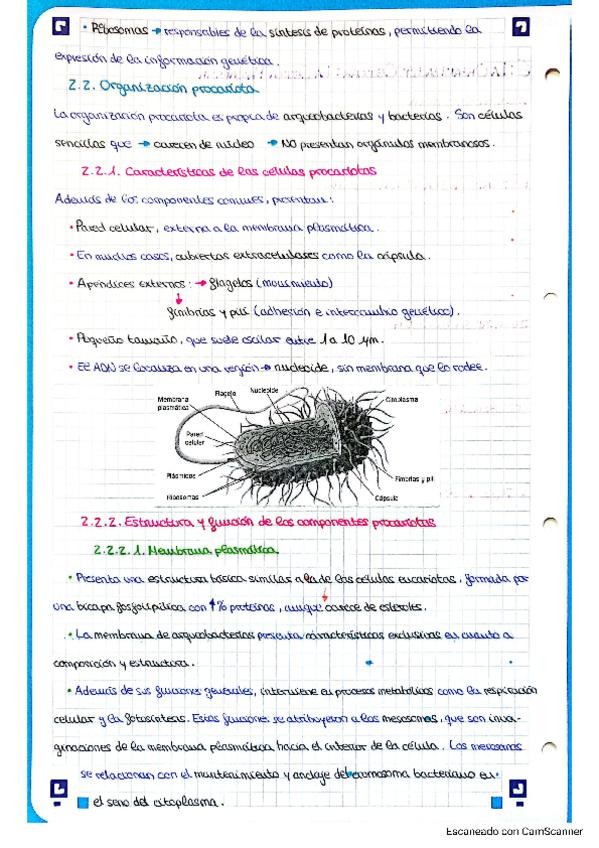 • Ribosomas → responsables de la síntesis de proteínas, permitiendo la
expresión de la información genética.
2.2. Organización procariota
La organización procariota es propia de arqueobacterias y bacterias. Son células
sencillas que → carecen de núcleo → NO presentan orgánulos membranosos.
2.2.1. Características de las células procariotas
Además de los componentes comunes, presentan:
• Pared celular, externa a la membrana plasmática.
• En muchos casos, cubiertas extracelulares como la cápsula.
• Apéndices externos: → flagelos (movimiento)
↓
fimbrias y pili (adhesión e intercambio genético).
• Pequeño tamaño, que suele oscilar entre 1 a 10 µm.
• El ADN se localiza en una región → nucleoide, sin membrana que lo rodee.
Membrana plasmática
Flagelo
Nucleoide
Citoplasma
Pared celular
Plásmidos
Ribosomas
Fimbrias y pili
Cápsula
2.2.2. Estructura y función de los componentes procariotas
2.2.2.1. Membrana plasmática
• Presenta una estructura básica similar a la de las células eucariotas, formada por
una bicapa fosfolipílica con ↑% proteínas, aunque carece de esteroles.
• La membrana de arqueobacterias presenta características exclusivas en cuanto a
composición y estructura.
• Además de sus funciones generales, interviene en procesos metabólicos como la respiración
celular y la fotosíntesis. Estas funciones se atribuyeron a los mesosomas, que son inva-
ginaciones de la membrana plasmática hacia el interior de la célula. Los mesosomas
se relacionan con el mantenimiento y anclaje del cromosoma bacteriano en
el seno del citoplasma.
Escaneado con CamScanner